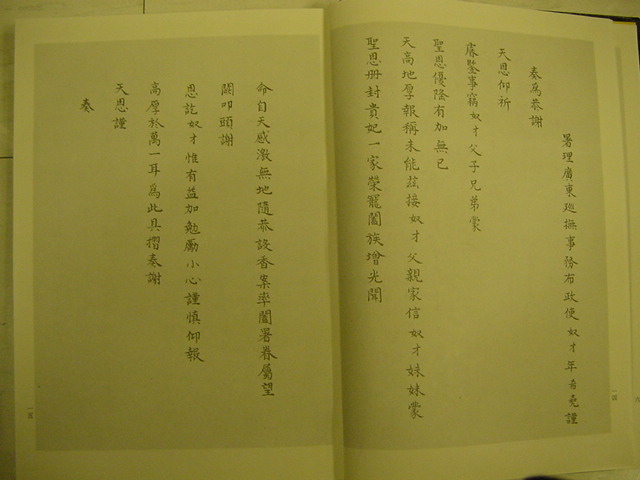 署理廣東巡撫事務布政使奴才年希堯謹
奏為恭謝
天恩仰祈
睿鑒事竊奴才父子兄弟蒙
聖恩優隆有加無已
天高地厚報稱未能茲接奴才父親家信奴才妹妹蒙
聖恩册封貴妃一家榮寵闔族增光聞
命自天感激無地隨恭設香案率闔署眷屬望
闕叩頭謝
恩訖奴才惟有益加勉勵小心謹慎仰報
高厚於萬一耳為此具摺奏謝
天恩謹
奏
一四
一五
六